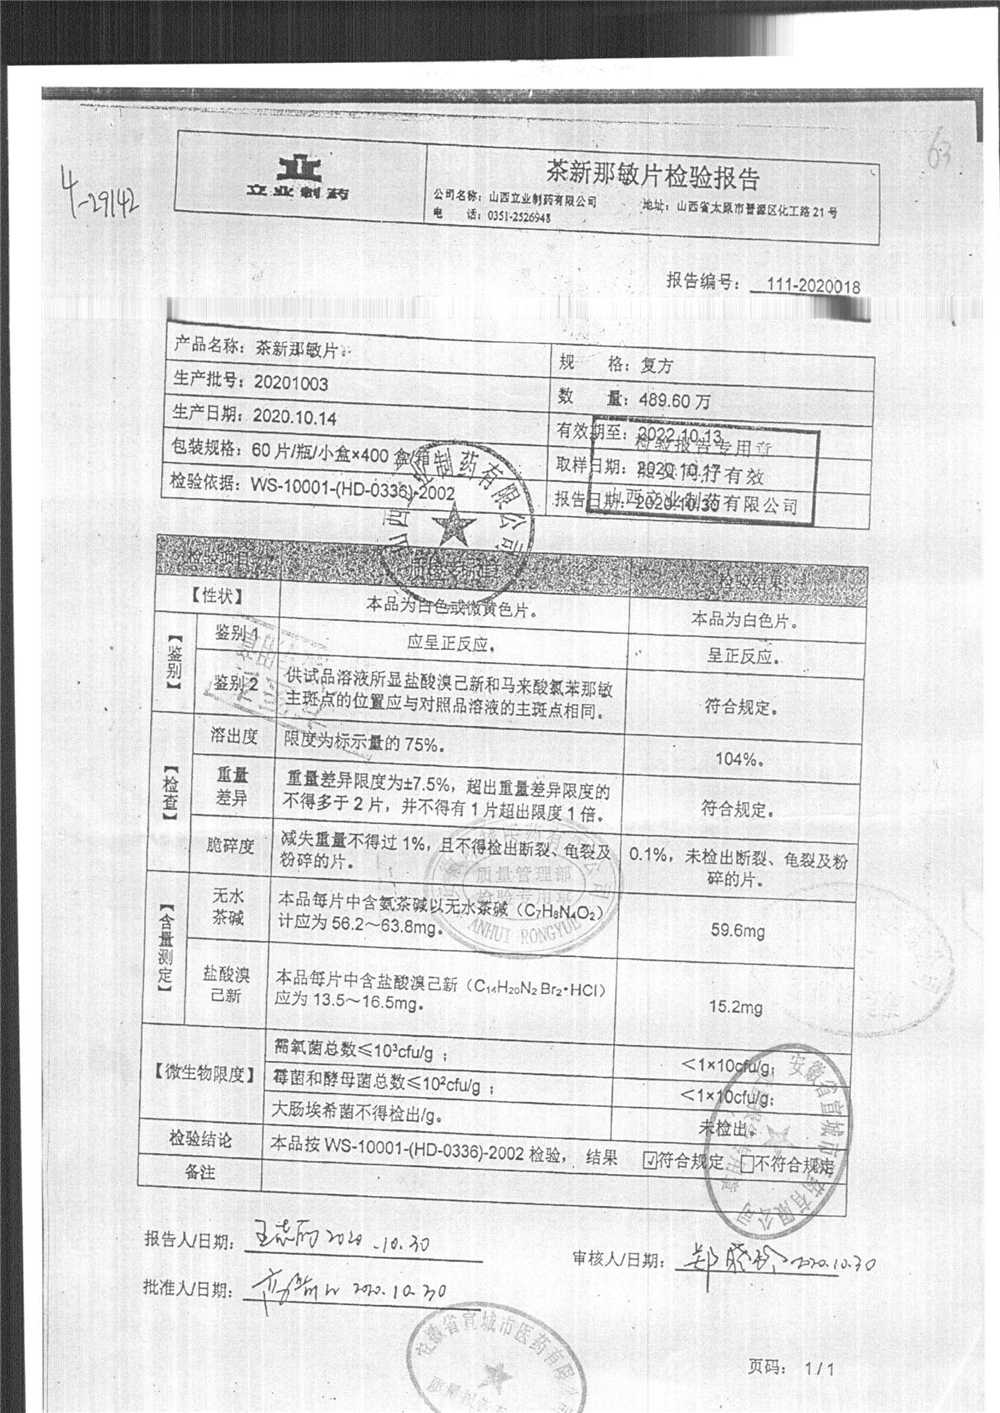 63
4-29142
立业制药
茶新那敏片检验报告
公司名称：山西立业制药有限公司 地址：山西省太原市晋源区化工路21号
电 话：0351-2526948
报告编号： 111-2020018
产品名称：茶新那敏片 规 格：复方
生产批号：20201003 数 量：489.60万
生产日期：2020.10.14 有效期至：2022.10.13
包装规格：60片/瓶/小盒×400盒/箱 取样日期：2020.10.17
检验依据：WS-10001-(HD-0336)-2002 报告日期：2020.10.30
检验报告专用章
有效
山西立业制药有限公司
山西立业制药有限公司
检验项目 检验结果
【性状】 本品为白色或微黄色片。 本品为白色片。
【鉴别】 鉴别1 应呈正反应。 呈正反应。
鉴别2 供试品溶液所显盐酸溴己新和马来酸氯苯那敏
主斑点的位置应与对照品溶液的主斑点相同。 符合规定。
【检查】 溶出度 限度为标示量的75%。 104%。
重量
差异 重量差异限度为±7.5%，超出重量差异限度的
不得多于2片，并不得有1片超出限度1倍。 符合规定。
脆碎度 减失重量不得过1%，且不得检出断裂、龟裂及
粉碎的片。 0.1%，未检出断裂、龟裂及粉
碎的片。
质量管理部
检验专用章
ANHUI RONGYUE
【含量测定】 无水
茶碱 本品每片中含氨茶碱以无水茶碱（C₇H₈N₄O₂）
计应为56.2～63.8mg。 59.6mg
盐酸溴
己新 本品每片中含盐酸溴己新（C₁₄H₂₀N₂Br₂•HCl）
应为13.5～16.5mg。 15.2mg
【微生物限度】 需氧菌总数≤10³cfu/g； ＜1×10cfu/g;
霉菌和酵母菌总数≤10²cfu/g； ＜1×10cfu/g;
大肠埃希菌不得检出/g。 未检出。
检验结论 本品按WS-10001-(HD-0336)-2002检验， 结果 ☑符合规定 □不符合规定
备注
安徽省宣城市医药有限公司
报告人/日期： 2020.10.30
审核人/日期： 2020.10.30
批准人/日期： 2020.10.30
安徽省宣城市医药有限公司
页码： 1 / 1